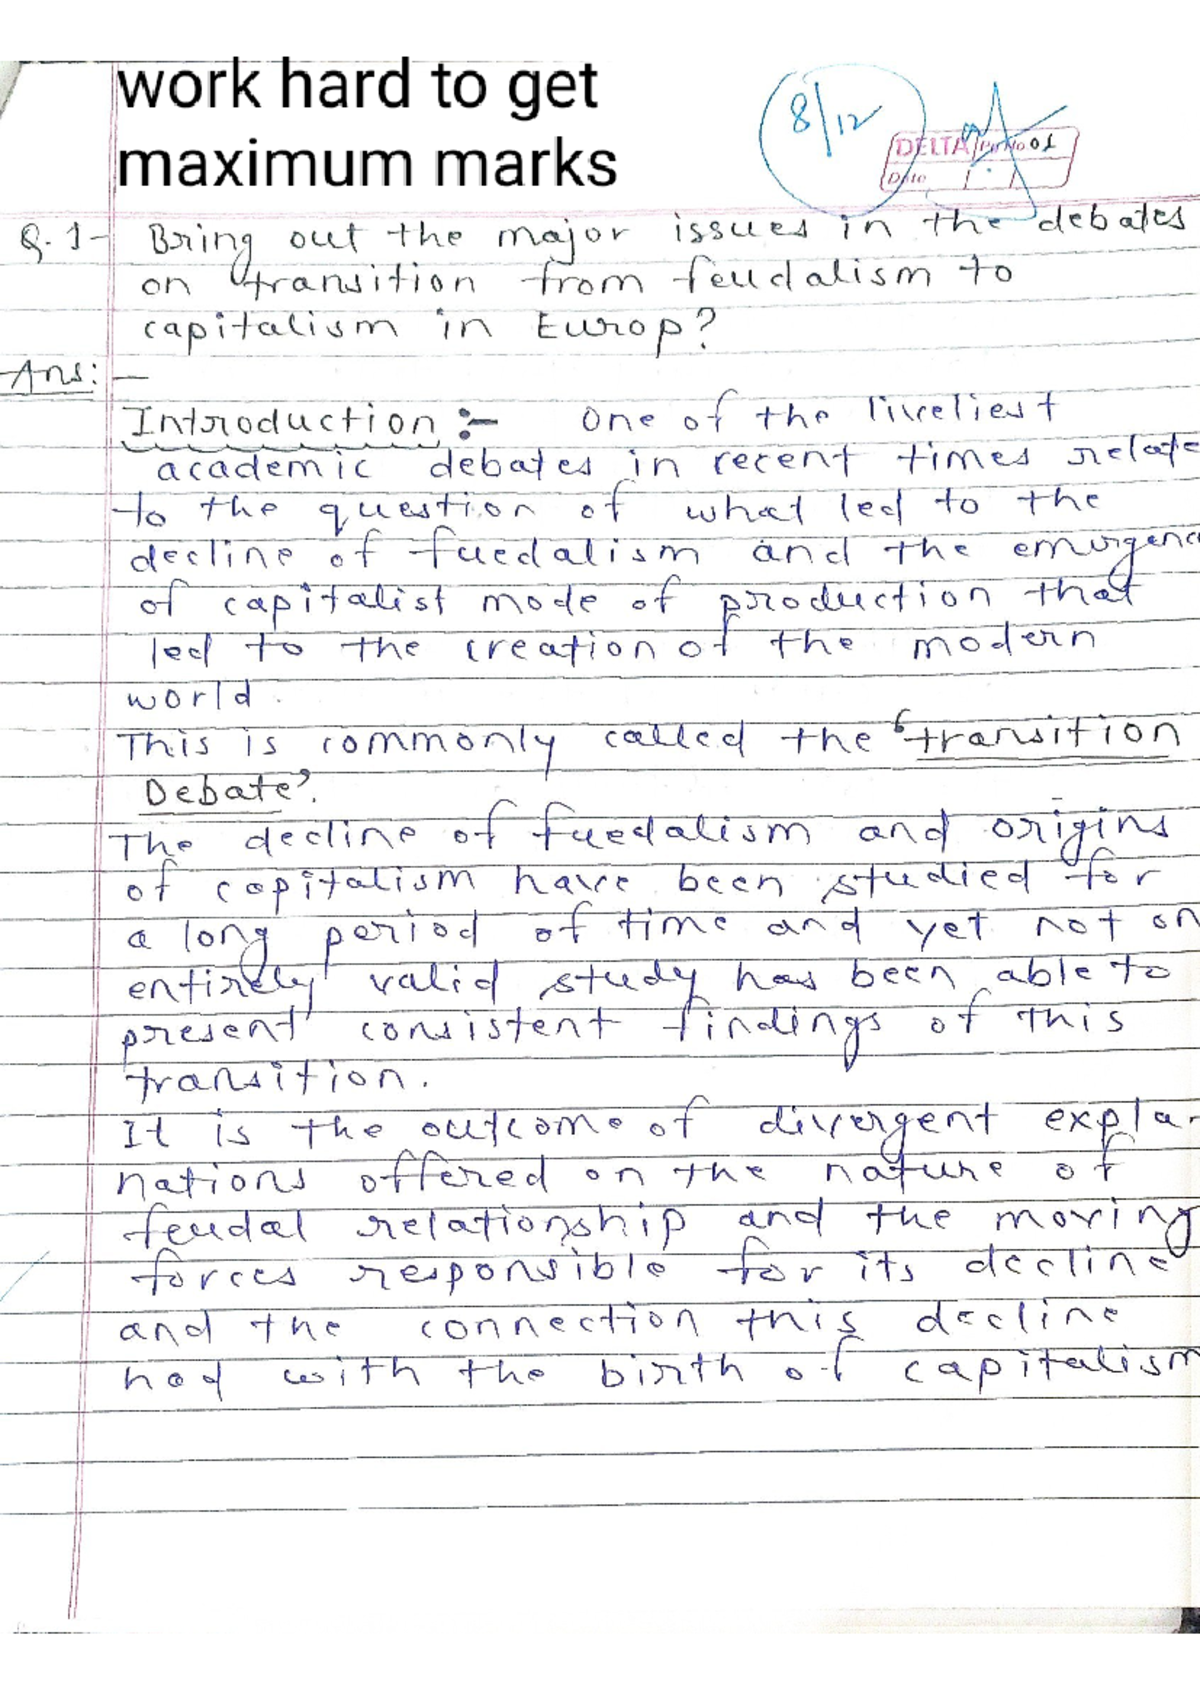 work hard to get
maximum marks
8/12
DELTA Pg No 01
Date / /
Q.1- Bring out the major issues in the debates
on transition from feudalism to
capitalism in Europ?
Ans:-
Introduction :- One of the liveliest
academic debates in recent times relate
to the question of what led to the
decline of fuedalism and the emurgenc
of capitalist mode of production that
led to the creation of the modern
world.
This is commonly called the 'transition
Debate'.
The decline of fuedalism and origins
of capitalism have been studied for
a long period of time and yet not an
entirely valid study has been able to
present consistent findings of this
transition.
It is the outcome of divergent expla-
nations offered on the nature of
feudal relationship and the moving
forces responsible for its decline
and the connection this decline
had with the birth of capitalism